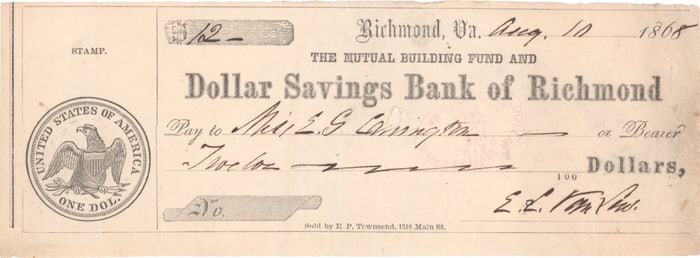 $12 – Richmond, Va. Aug. 10 1868
STAMP.
THE MUTUAL BUILDING FUND AND
Dollar Savings Bank of Richmond
UNITED STATES OF AMERICA
ONE DOL.
Pay to Miss E. G. Carrington — or Bearer
Twelve — 100 Dollars,
No.
E. L. Van Lew.
Sold by E. P. Townsend, 1318 Main St.